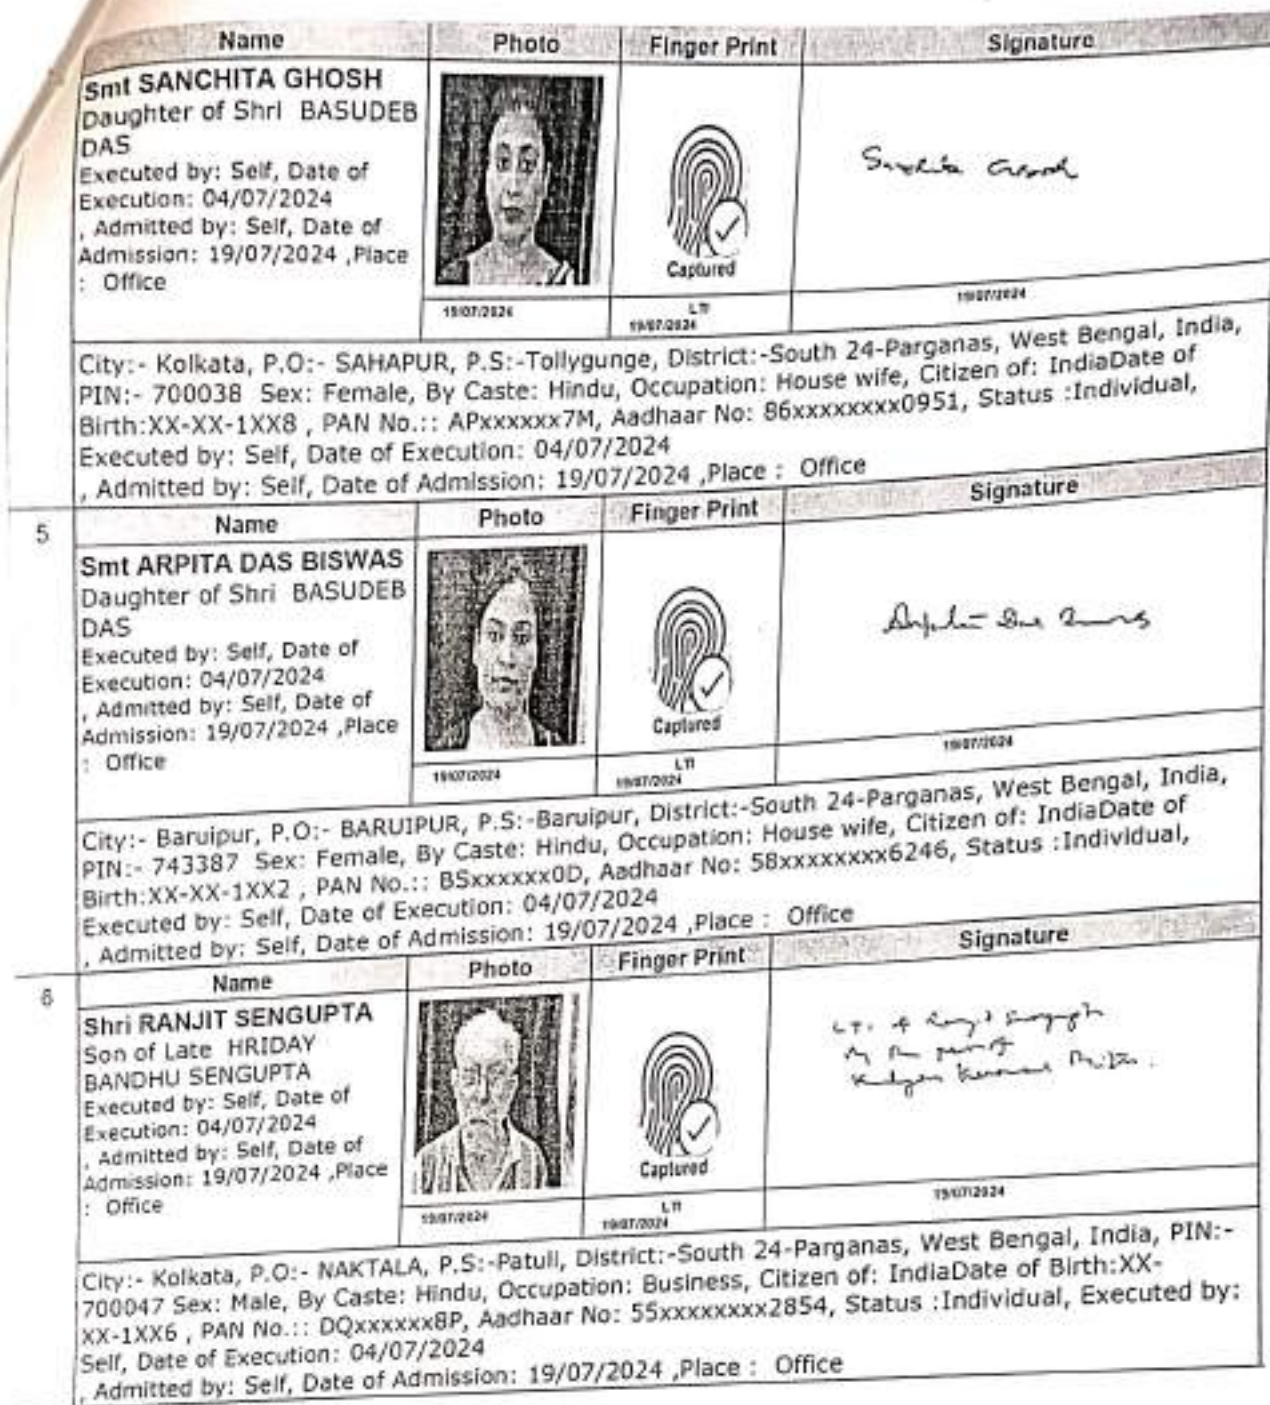 Name Photo Finger Print Signature
Smt SANCHITA GHOSH
Daughter of Shri BASUDEB
DAS
Executed by: Self, Date of
Execution: 04/07/2024
, Admitted by: Self, Date of
Admission: 19/07/2024 ,Place
: Office
Captured
19/07/2024
LTI
19/07/2024
19/07/2024
City:- Kolkata, P.O:- SAHAPUR, P.S:-Tollygunge, District:-South 24-Parganas, West Bengal, India,
PIN:- 700038 Sex: Female, By Caste: Hindu, Occupation: House wife, Citizen of: IndiaDate of
Birth:XX-XX-1XX8 , PAN No.:: APxxxxxx7M, Aadhaar No: 86xxxxxxxx0951, Status :Individual,
Executed by: Self, Date of Execution: 04/07/2024
, Admitted by: Self, Date of Admission: 19/07/2024 ,Place : Office
5
Name Photo Finger Print Signature
Smt ARPITA DAS BISWAS
Daughter of Shri BASUDEB
DAS
Executed by: Self, Date of
Execution: 04/07/2024
, Admitted by: Self, Date of
Admission: 19/07/2024 ,Place
: Office
Captured
19/07/2024
LTI
19/07/2024
19/07/2024
City:- Baruipur, P.O:- BARUIPUR, P.S:-Baruipur, District:-South 24-Parganas, West Bengal, India,
PIN:- 743387 Sex: Female, By Caste: Hindu, Occupation: House wife, Citizen of: IndiaDate of
Birth:XX-XX-1XX2 , PAN No.:: BSxxxxxx0D, Aadhaar No: 58xxxxxxxx6246, Status :Individual,
Executed by: Self, Date of Execution: 04/07/2024
, Admitted by: Self, Date of Admission: 19/07/2024 ,Place : Office
6
Name Photo Finger Print Signature
Shri RANJIT SENGUPTA
Son of Late HRIDAY
BANDHU SENGUPTA
Executed by: Self, Date of
Execution: 04/07/2024
, Admitted by: Self, Date of
Admission: 19/07/2024 ,Place
: Office
Captured
19/07/2024
LTI
19/07/2024
19/07/2024
City:- Kolkata, P.O:- NAKTALA, P.S:-Patuli, District:-South 24-Parganas, West Bengal, India, PIN:-
700047 Sex: Male, By Caste: Hindu, Occupation: Business, Citizen of: IndiaDate of Birth:XX-
XX-1XX6 , PAN No.:: DQxxxxxx8P, Aadhaar No: 55xxxxxxxx2854, Status :Individual, Executed by:
Self, Date of Execution: 04/07/2024
, Admitted by: Self, Date of Admission: 19/07/2024 ,Place : Office